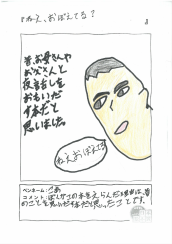 ねえ、おぼえてる？
昔、お母さんや
お父さんと
夜ふかしを
おもいだ
す本だと
思いました。
ねえおぼえてる
ペンネーム：
コメント：ぼくがこの本をえらんだ理由は、昔
のことを思いだす本だと思ったことです。